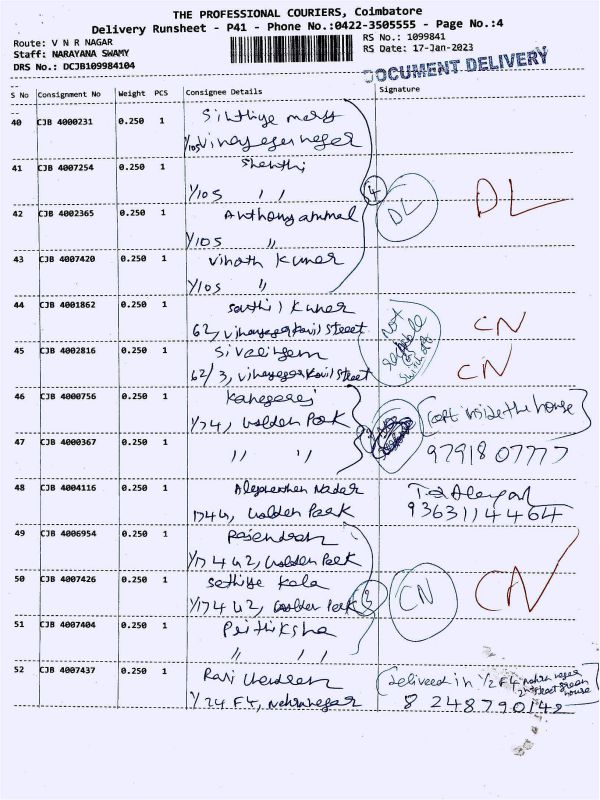 THE PROFESSIONAL COURIERS, Coimbatore
Delivery Runsheet - P41 - Phone No.:0422-3505555 - Page No.:4
Route: V N R NAGAR
RS No.: 1099841
Staff: NARAYANA SWAMY
RS Date: 17-Jan-2023
DRS No.: DCJB109984104
DOCUMENT DELIVERY
S No Consignment No Weight PCS Consignee Details Signature
40 CJB 4000231 0.250 1 mary
Y/105
41 CJB 4007254 0.250 1 Shanthi
Y/105 , ,
4 DL DL
42 CJB 4002365 0.250 1 Anthonyammal
Y/105 "
43 CJB 4007420 0.250 1 Vinoth Kumar
Y/105 "
44 CJB 4001862 0.250 1 Kumar
62, Street
Not
CN
45 CJB 4002816 0.250 1 Sivalingam
62/3, Street
CN
46 CJB 4000756 0.250 1
Y/74, Golden Park
inside the house
47 CJB 4000367 0.250 1 " "
9791807777
48 CJB 4004116 0.250 1 Nadar
Golden Park
9363114464
49 CJB 4006954 0.250 1 Rajendran
Golden Park
50 CJB 4007426 0.250 1 Kala
Park
3 CN CN
51 CJB 4007404 0.250 1 Prithiksha
" , ,
52 CJB 4007437 0.250 1 Ravi
Y/24 F4, Nehrunagar
delivered in 1/2 F4 nehru nagar
2nd street green
house
8248790142